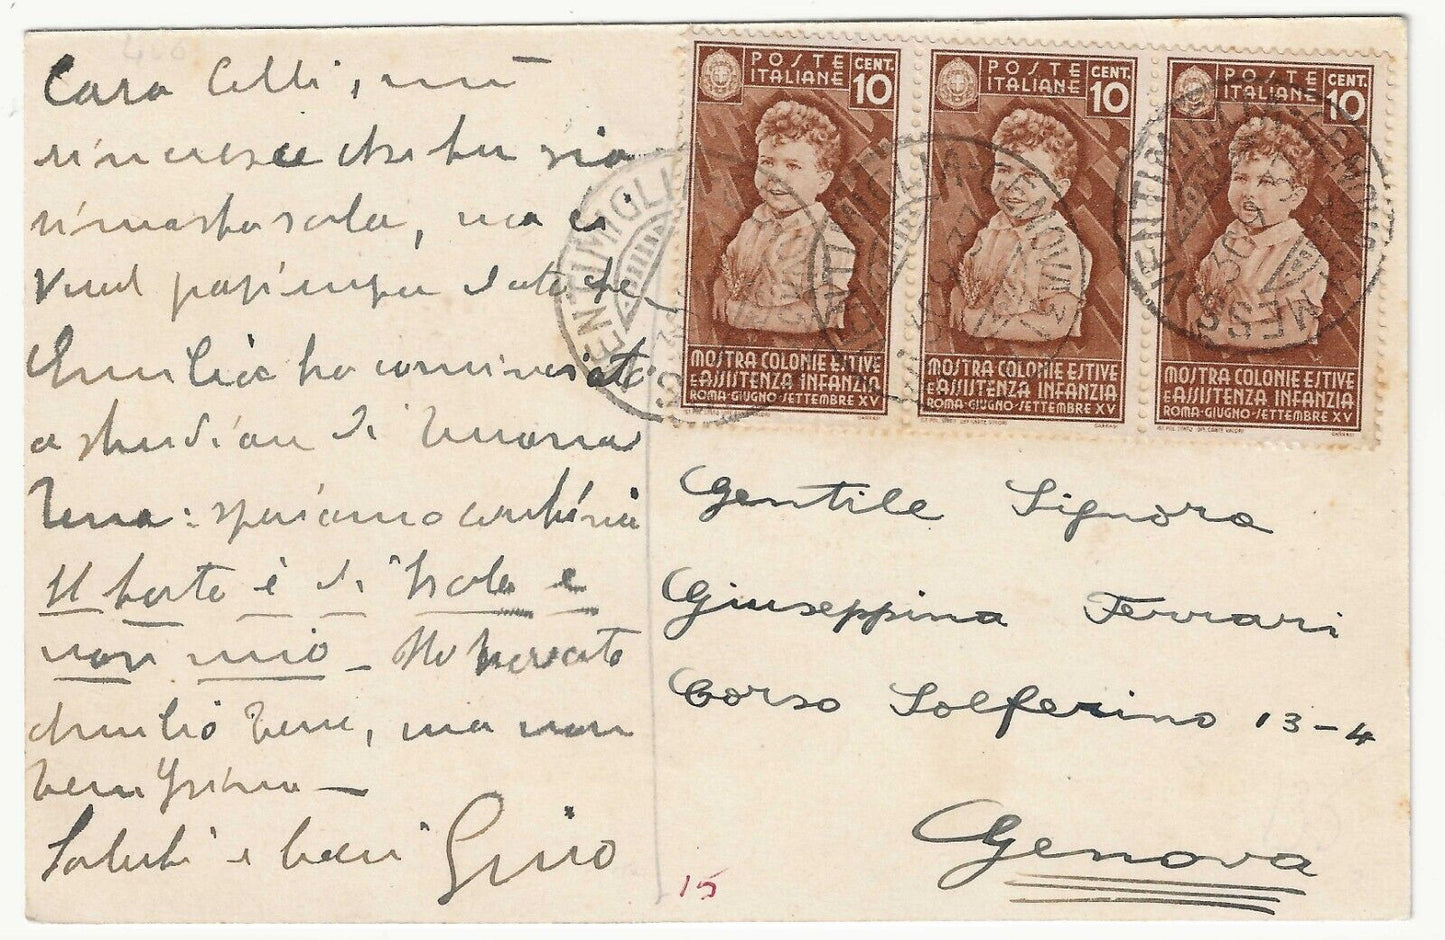 Cara Celli, mi
rincresce che tu sia
rimasta sola, ma ci
vuol pazienza dato che
Emilio ha cominciato
a studiare di buona
lena: speriamo continui
Il posto è di Isola e
non mio - Ho trovato
Emilio bene, ma non
benissimo -
Saluti e baci Gino
POSTE ITALIANE CENT. 10
MOSTRA COLONIE ESTIVE
E ASSISTENZA INFANZIA
ROMA·GIUGNO·SETTEMBRE XV
POSTE ITALIANE CENT. 10
MOSTRA COLONIE ESTIVE
E ASSISTENZA INFANZIA
ROMA·GIUGNO·SETTEMBRE XV
POSTE ITALIANE CENT. 10
MOSTRA COLONIE ESTIVE
E ASSISTENZA INFANZIA
ROMA·GIUGNO·SETTEMBRE XV
VENTIMIGLIA-GENOVA
Gentile Signora
Giuseppina Ferrari
Corso Solferino 13-4
Genova
15